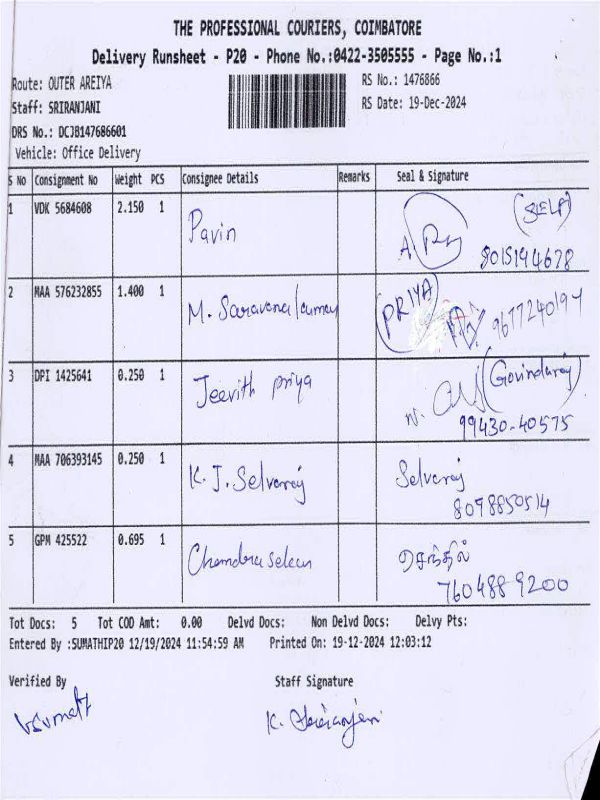 THE PROFESSIONAL COURIERS, COIMBATORE
Delivery Runsheet - P20 - Phone No.:0422-3505555 - Page No.:1
Route: OUTER AREIYA RS No.: 1476866
Staff: SRIRANJANI RS Date: 19-Dec-2024
DRS No.: DCJB147686601
Vehicle: Office Delivery
S No Consignment No Weight PCS Consignee Details Remarks Seal & Signature
1 VDK 5684608 2.150 1 Pavin
2 MAA 576232855 1.400 1 M. Saravanakumar PRIYA 9677240194
3 DPI 1425641 0.250 1 Jeevith priya (Govindaraj)
99430-40575
4 MAA 706393145 0.250 1 K. J. Selvaraj Selvaraj
8098850514
5 GPM 425522 0.695 1 Chandrasekar செந்தில்
760488 9200
Tot Docs: 5 Tot COD Amt: 0.00 Delvd Docs: Non Delvd Docs: Delvy Pts:
Entered By :SUMATHIP20 12/19/2024 11:54:59 AM Printed On: 19-12-2024 12:03:12
Verified By Staff Signature